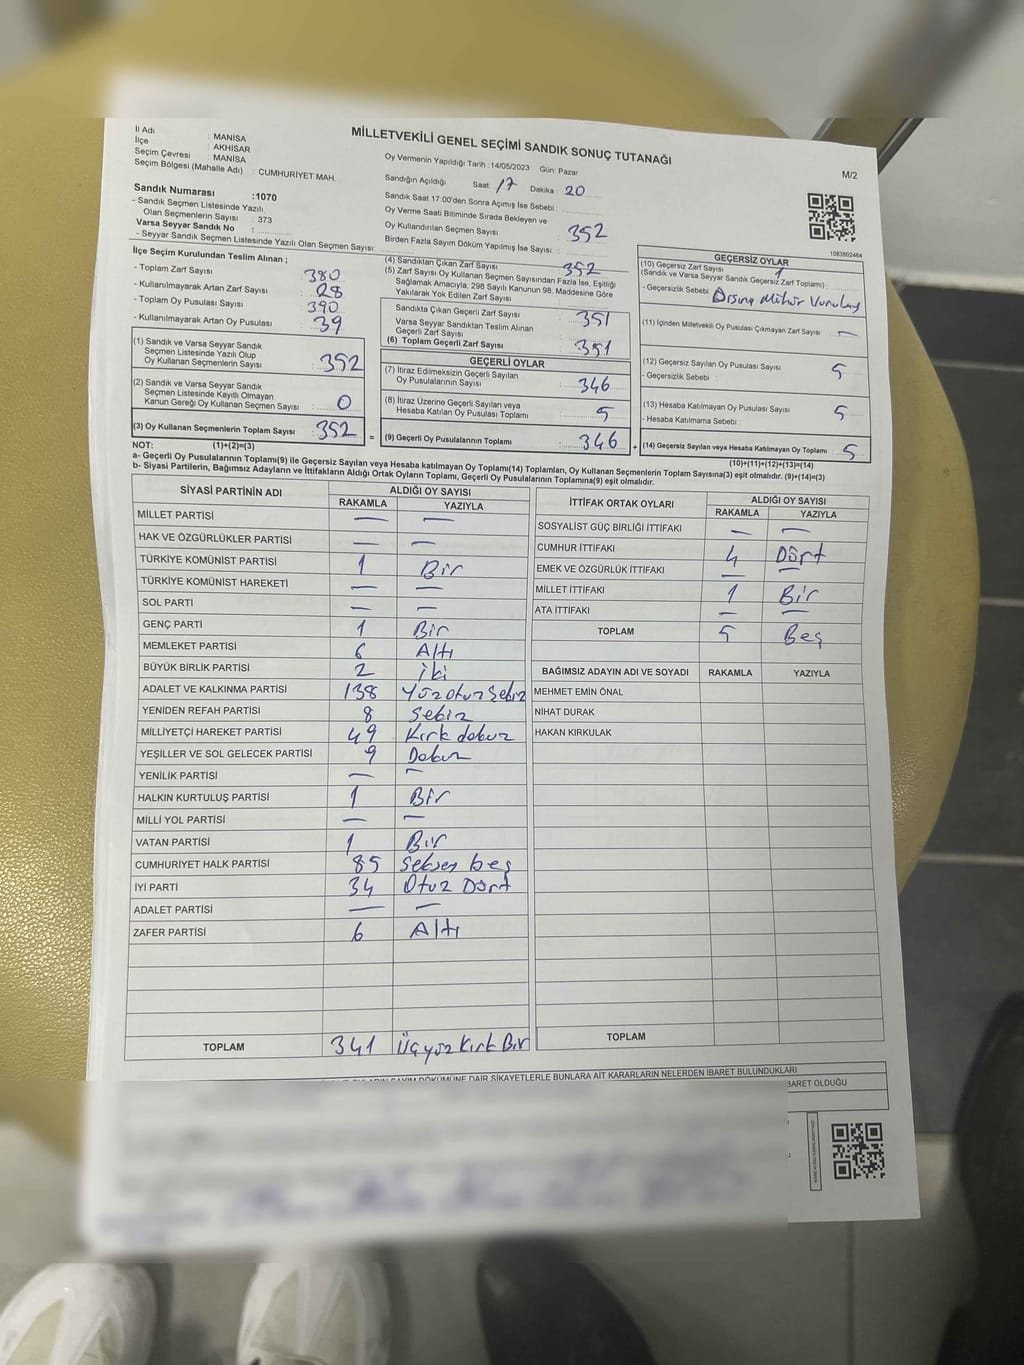 MİLLETVEKİLİ GENEL SEÇİMİ SANDIK SONUÇ TUTANAĞI
M/2
İl Adı : MANİSA
İlçe : AKHİSAR
Seçim Çevresi : MANİSA
Seçim Bölgesi (Mahalle Adı) : CUMHURİYET MAH.
Sandık Numarası :1070
- Sandık Seçmen Listesinde Yazılı
Olan Seçmenlerin Sayısı : 373
Varsa Seyyar Sandık No :
- Seyyar Sandık Seçmen Listesinde Yazılı Olan Seçmen Sayısı:
Oy Vermenin Yapıldığı Tarih :14/05/2023 Gün: Pazar
Sandığın Açıldığı Saat: 17 Dakika : 20
Sandık Saat 17:00'den Sonra Açılmış İse Sebebi :
Oy Verme Saati Bitiminde Sırada Bekleyen ve
Oy Kullandırılan Seçmen Sayısı : 352
Birden Fazla Sayım Döküm Yapılmış İse Sayısı :
1083802464
İlçe Seçim Kurulundan Teslim Alınan ;
- Toplam Zarf Sayısı : 380
- Kullanılmayarak Artan Zarf Sayısı : 28
- Toplam Oy Pusulası Sayısı : 390
- Kullanılmayarak Artan Oy Pusulası : 39
(1) Sandık ve Varsa Seyyar Sandık
Seçmen Listesinde Yazılı Olup
Oy Kullanan Seçmenlerin Sayısı : 352
(2) Sandık ve Varsa Seyyar Sandık
Seçmen Listesinde Kayıtlı Olmayan
Kanun Gereği Oy Kullanan Seçmen Sayısı : 0
(3) Oy Kullanan Seçmenlerin Toplam Sayısı : 352
(4) Sandıktan Çıkan Zarf Sayısı : 352
(5) Zarf Sayısı Oy Kullanan Seçmen Sayısından Fazla İse, Eşitliği
Sağlamak Amacıyla, 298 Sayılı Kanunun 98. Maddesine Göre
Yakılarak Yok Edilen Zarf Sayısı :
Sandıkta Çıkan Geçerli Zarf Sayısı : 351
Varsa Seyyar Sandıktan Teslim Alınan
Geçerli Zarf Sayısı :
(6) Toplam Geçerli Zarf Sayısı : 351
GEÇERLİ OYLAR
(7) İtiraz Edilmeksizin Geçerli Sayılan
Oy Pusulalarının Sayısı : 346
(8) İtiraz Üzerine Geçerli Sayılan veya
Hesaba Katılan Oy Pusulası Toplamı : 5
= (9) Geçerli Oy Pusulalarının Toplamı : 346
GEÇERSİZ OYLAR
(10) Geçersiz Zarf Sayısı : 1
(Sandık ve Varsa Seyyar Sandık Geçersiz Zarf Toplamı)
- Geçersizlik Sebebi : Dışına Mühür Vurulmuş
(11) İçinden Milletvekili Oy Pusulası Çıkmayan Zarf Sayısı : —
(12) Geçersiz Sayılan Oy Pusulası Sayısı : 5
- Geçersizlik Sebebi :
(13) Hesaba Katılmayan Oy Pusulası Sayısı : 5
- Hesaba Katılmama Sebebi :
+ (14) Geçersiz Sayılan veya Hesaba Katılmayan Oy Toplamı : 5
NOT: (1)+(2)=(3)
(10)+(11)+(12)+(13)=(14)
a- Geçerli Oy Pusulalarının Toplamı(9) ile Geçersiz Sayılan veya Hesaba katılmayan Oy Toplamı(14) Toplamları, Oy Kullanan Seçmenlerin Toplam Sayısına(3) eşit olmalıdır. (9)+(14)=(3)
b- Siyasi Partilerin, Bağımsız Adayların ve İttifakların Aldığı Ortak Oyların Toplamı, Geçerli Oy Pusulalarının Toplamına(9) eşit olmalıdır.
SİYASİ PARTİNİN ADI ALDIĞI OY SAYISI
RAKAMLA YAZIYLA
MİLLET PARTİSİ — —
HAK VE ÖZGÜRLÜKLER PARTİSİ — —
TÜRKİYE KOMÜNİST PARTİSİ 1 Bir
TÜRKİYE KOMÜNİST HAREKETİ — —
SOL PARTİ — —
GENÇ PARTİ 1 Bir
MEMLEKET PARTİSİ 6 Altı
BÜYÜK BİRLİK PARTİSİ 2 İki
ADALET VE KALKINMA PARTİSİ 138 Yüz Otuz Sekiz
YENİDEN REFAH PARTİSİ 8 Sekiz
MİLLİYETÇİ HAREKET PARTİSİ 49 Kırk dokuz
YEŞİLLER VE SOL GELECEK PARTİSİ 9 Dokuz
YENİLİK PARTİSİ — —
HALKIN KURTULUŞ PARTİSİ 1 Bir
MİLLİ YOL PARTİSİ — —
VATAN PARTİSİ 1 Bir
CUMHURİYET HALK PARTİSİ 85 Seksen beş
İYİ PARTİ 34 Otuz Dört
ADALET PARTİSİ — —
ZAFER PARTİSİ 6 Altı
TOPLAM 341 Üçyüz Kırk Bir
İTTİFAK ORTAK OYLARI ALDIĞI OY SAYISI
RAKAMLA YAZIYLA
SOSYALİST GÜÇ BİRLİĞİ İTTİFAKI — —
CUMHUR İTTİFAKI 4 Dört
EMEK VE ÖZGÜRLÜK İTTİFAKI — —
MİLLET İTTİFAKI 1 Bir
ATA İTTİFAKI — —
TOPLAM 5 Beş
BAĞIMSIZ ADAYIN ADI VE SOYADI RAKAMLA YAZIYLA
MEHMET EMİN ÖNAL
NİHAT DURAK
HAKAN KIRKULAK
TOPLAM
DÖKÜMÜNE DAİR ŞİKAYETLERLE BUNLARA AİT KARARLARIN NELERDEN İBARET BULUNDUKLARI
İBARET OLDUĞU